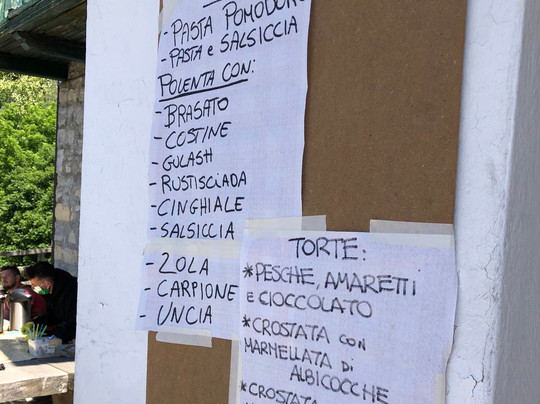 - PASTA POMODORO
- PASTA e SALSICCIA
POLENTA CON:
- BRASATO
- COSTINE
- GULASH
- RUSTISCIADA
- CINGHIALE
- SALSICCIA
- ZOLA
- CARPIONE
- UNCIA
TORTE:
* PESCHE, AMARETTI
E CIOCCOLATO
* CROSTATA CON
MARMELLATA DI
ALBICOCCHE
* CROSTATA